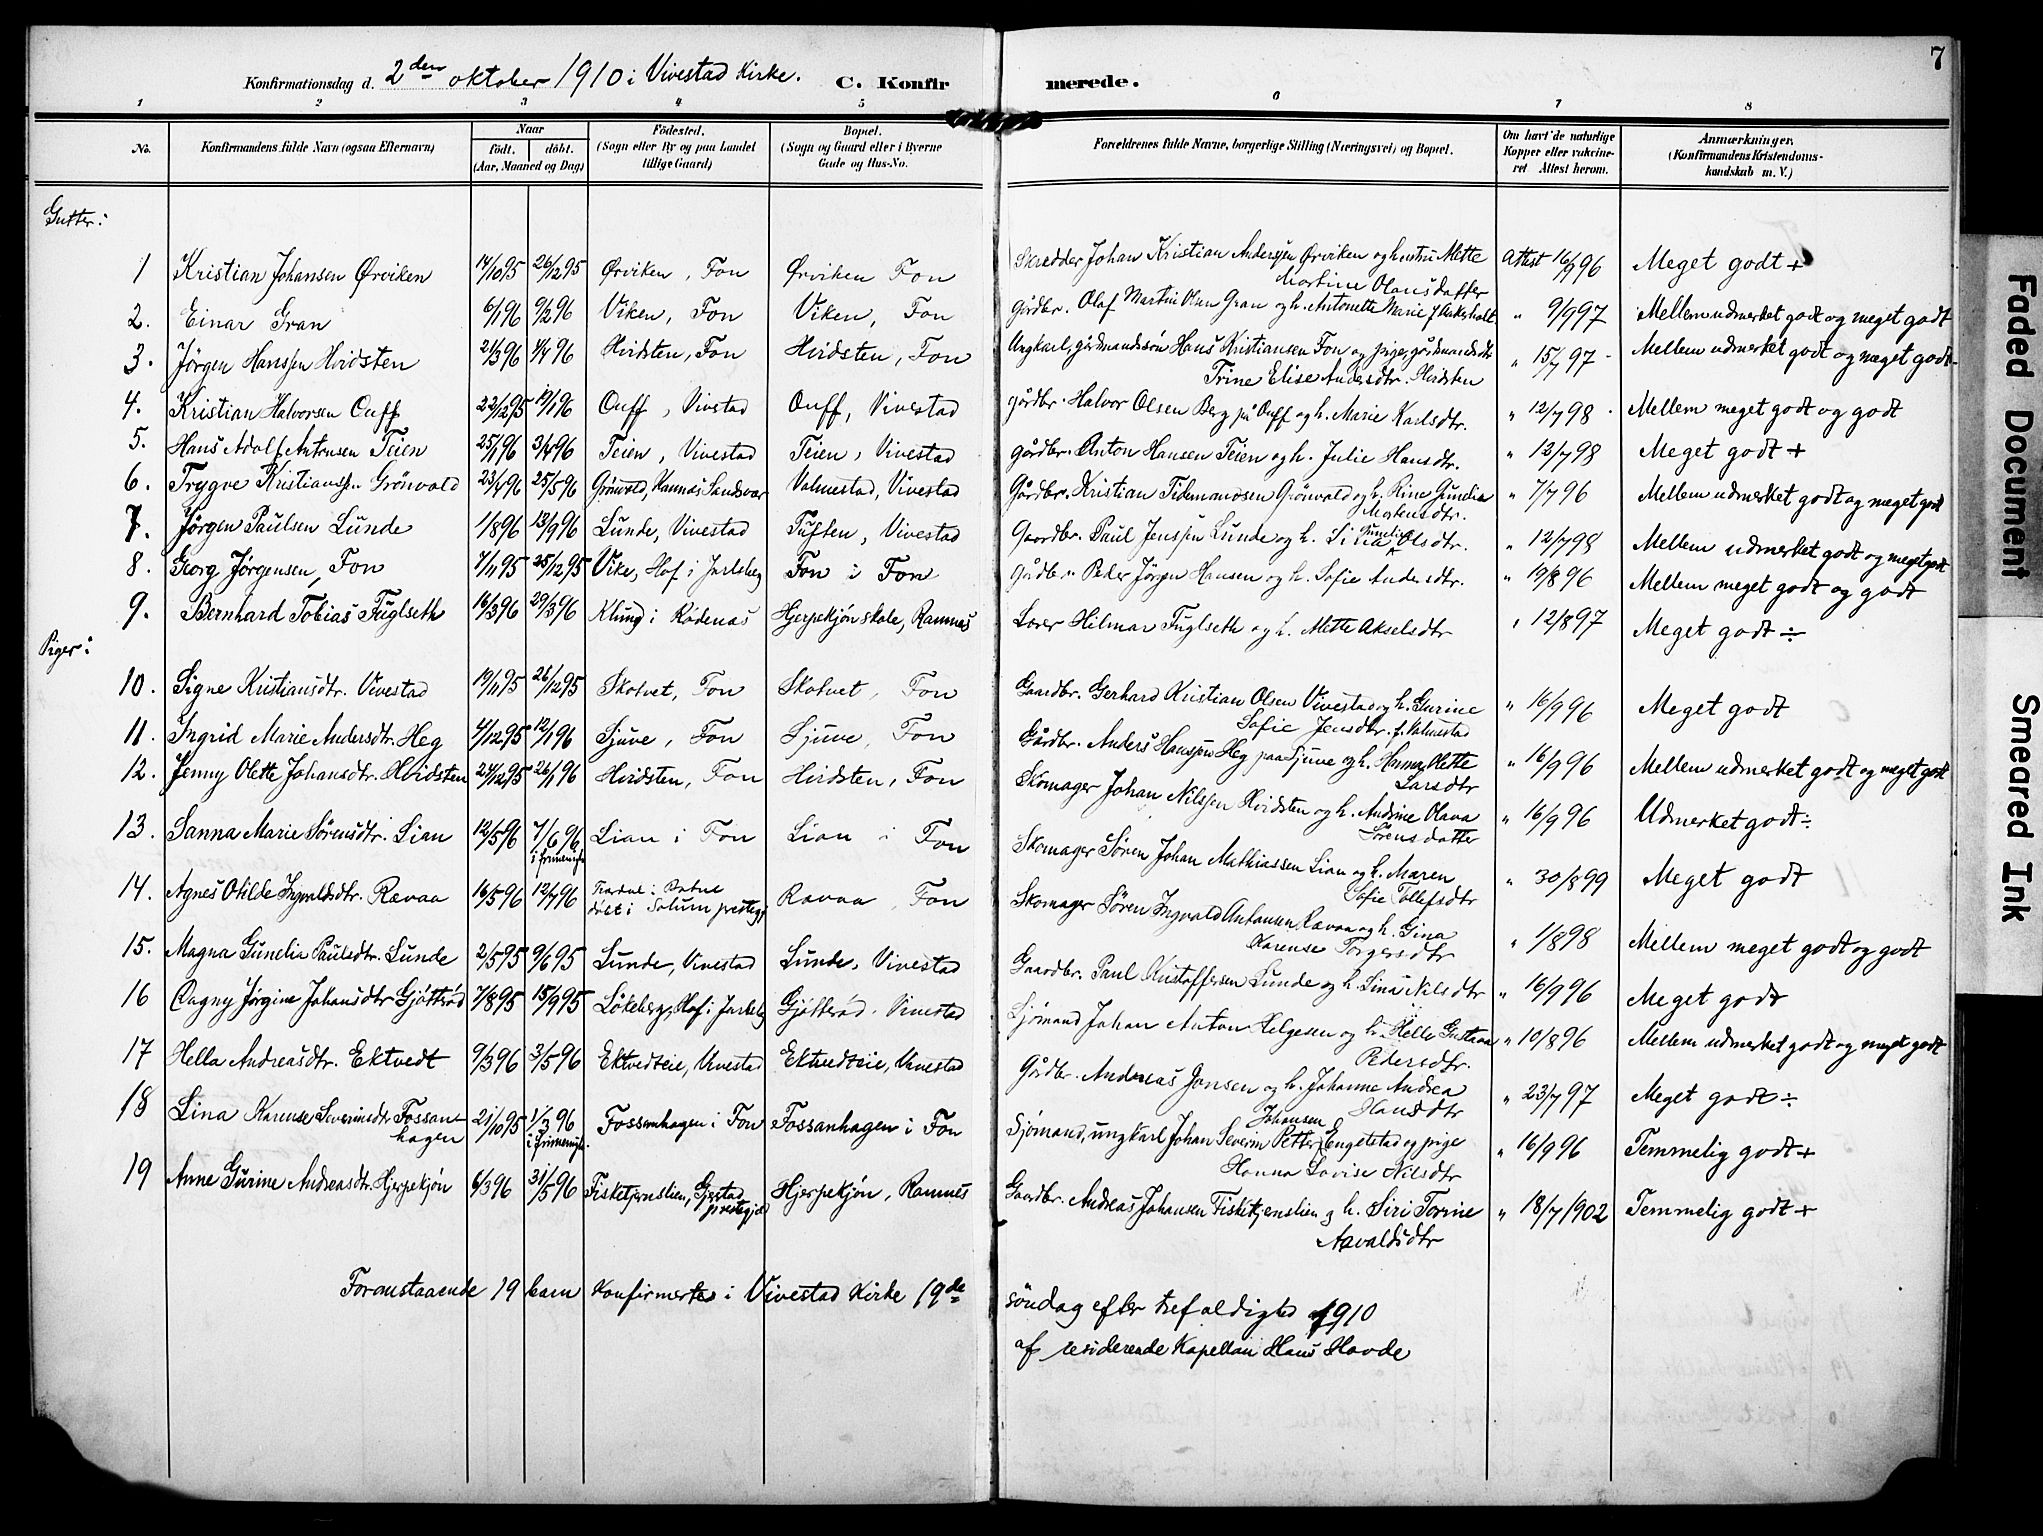 7
Konfirmationsdag d. 2den oktober 1910 i Vivestad Kirke. C. Konfir merede.
1 2 3 4 5 6 7 8
No. Konfirmandens fulde Navn (ogsaa Efternavn) Naar født. døbt. (Aar, Maaned og Dag) Fødested. (Sogn eller By og paa Landet tillige Gaard) Bopæl. (Sogn og Gaard eller i Byerne Gade og Hus-No. Forældrenes fulde Navne, borgerlige Stilling (Næringsvei) og Bopæl. Om havt de naturlige Kopper eller vakcineret Attest herom. Anmærkninger. (Konfirmandens Kristendomskundskab m. V.)
Gutter:
1 Kristian Johansen Ørviken 14/10 95 26/12 95 Ørviken, Fon Ørviken Fon Skredder Johan Kristian Andersen Ørviken og hustru Mette Martine Olausdatter Attest 16/9 96 Meget godt +
2. Einar Gran 6/1 96 9/2 96 Viken, Fon Viken, Fon Gårdbr. Olaf Martin Olsen Gran og h. Antonette Marie f. " 9/9 97 Mellem udmerket godt og meget godt
3. Jørgen Hanssen Hvidsten 21/3 96 Hvidsten, Fon Hvidsten, Fon Ungkarl, gårdmandssøn Hans Kristiansen Fon og pige, gårdmandsdtr Trine Elise Andersdtr. Hvidsten " 15/7 97 Mellem udmerket godt og meget godt
4. Kristian Halvorsen Ouff 22/12 95 19/1 96 Ouff, Vivstad Ouff, Vivestad gårdbr. Halvor Olsen Berg på Ouff og h. Marie Karlsdtr. " 12/7 98 Mellem meget godt og godt
5. Hans Adolf Antonsen Teien 25/1 96 3/4 96 Teien, Vivestad Teien, Vivestad gårdbr. Anton Hansen Teien og h. Julie Hansdtr. " 12/7 98 Meget godt +
6. Trygve Kristianssen Grönvold 23/4 96 25/5 96 Grönvold, Hannas Sandsvær Valmestad, Vivestad Gårdbr. Kristian Tidemandsen Grönvold og h. Rine Gunelia Mortensdtr. " 7/7 96 Mellem udmerket godt og meget godt
7. Jørgen Paulsen Lunde 1/8 96 13/9 96 Lunde, Vivestad Tuften, Vivestad Gaardbr. Paul Jenssen Lunde og h. Gunelia Olsdtr. " 12/7 98 Mellem udmerket godt og meget godt
8. Georg Jørgensen, Fon 7/11 95 25/12 95 Vike, Hof i Jarlsberg Fon i Fon Gårdbr. Peder Jörgen Hansen og h. Sofie Andersdtr. " 19/8 96 Mellem meget godt og godt
9. Bernhard Tobias Fuglseth 16/3 96 29/3 96 Klund i Rödenæs Hjerpekjøn skole, Ramnæs Lærer Hilmar Fuglseth og h. Mette Akselsdtr " 12/8 97 Meget godt ÷
Piger:
10. Signe Kristiansdtr. Vivestad 19/11 95 26/12 95 Skotvet, Fon Skotvet, Fon Gaardbr. Gerhard Kristian Olsen Vivestad og h. Gurine Sofie Jensdtr. f. Valmestad " 16/9 96 Meget godt
11. Ingrid Marie Andersdtr. Heg 4/12 95 12/1 96 Sjuve, Fon Sjuve, Fon Gårdbr. Anders Hanssen Heg paa Sjuve og h. Hanna Mette Larsdtr " 16/9 96 Mellem udmerket godt og meget godt
12. Jenny Olette Johansdtr. Hvidsten 27/12 95 26/1 96 Hvidsten, Fon Hvidsten, Fon Skomager Johan Nilssen Hvidsten og h. Andrine Olava Sörensdatter " 16/9 96 Udmerket godt ÷
13. Sanna Marie Sørensdtr. Lian 12/5 96 7/6 96 Lian i Fon Lian i Fon Skomager Søren Johan Mathiassen Lian og h. Maren Sofie Tollefsdtr " 30/8 99 Meget godt
14. Agnes Otilde Ingvaldsdtr. Rævaa 16/5 96 12/7 96 døbt i Solum prestegj Ravaa, Fon Skomager Sören Ingvald Antonsen Ravaa og h. Gina Karense Torgersdtr " 1/8 98 Mellem meget godt og godt
15. Magna Gunelia Paulsdtr. Lunde 2/5 95 9/6 95 Lunde, Vivestad Lunde, Vivestad Gaardbr. Paul Kristoffersen Lunde og h. Lina Nilsdtr " 16/9 96 Meget godt
16 Dagny Jørgine Johansdtr Gjøtterød 7/8 95 15/9 95 Løkeberg, Hof i Jarlsberg Gjøtterød, Vivestad Sjømand Johan Anton Helgesen og h. Helle Gustava Pedersdtr. " 10/8 96 Mellem udmerket godt og meget godt
17 Hella Andreasdtr. Ektvedt 9/3 96 3/5 96 Ektvedteie, Vivestad Ektvedteie, Vivestad Gårdbr. Andreas Jonsen og h. Johanne Andrea Hansdtr " 23/7 97 Meget godt ÷
18 Lina Karense Severinsdtr Fossanhagen 21/10 95 1/3 96 Fossanhagen i Fon Fossanhagen i Fon Sjømand, ungkarl Johan Severin Petter Johansen Engelstad og pige Hanna Lovise Nilsdtr " 16/9 96 Temmelig godt +
19 Anne Gurine Andreasdtr. Hjerpekjøn 6/3 96 31/5 96 Fisketjernslien, Gjerstad prestegjæld Hjerpekjøn, Ramnes Gaardbr. Andreas Johansen Fisketjernslien og h. Siri Torine Aavaldsdtr " 18/7 1902 Temmelig godt +
Foranstaaende 19 barn konfirmertes i Vivestad Kirke 19de
söndag efter trefoldighed 1910
af residerende Kapellan Hans Hovde
Faded Document
Smeared Ink